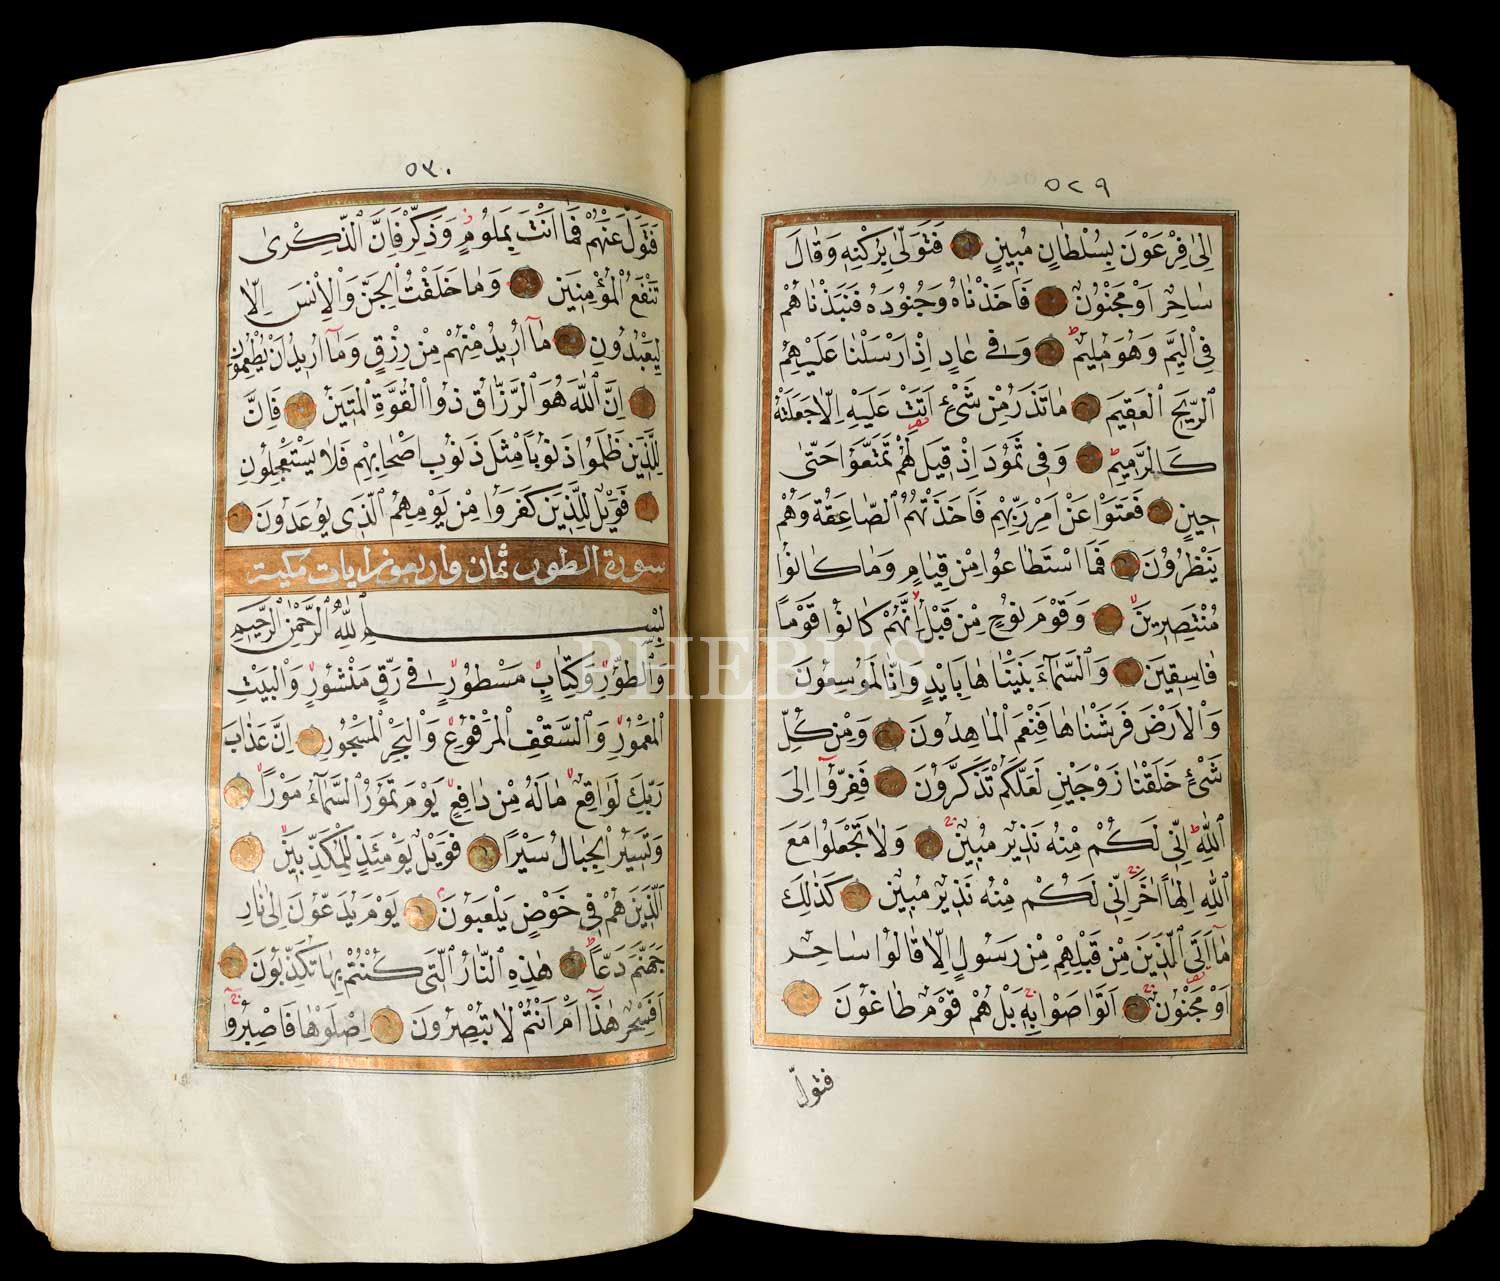 ٥٢٩
إِلَىٰ فِرْعَوْنَ بِسُلْطَانٍ مُبِينٍ فَتَوَلَّىٰ بِرُكْنِهِ وَقَالَ
سَاحِرٌ اَوْ مَجْنُونٌ فَاَخَذْنَاهُ وَجُنُودَهُ فَنَبَذْنَاهُمْ
فِي الْيَمِّ وَهُوَ مُلِيمٌ وَفِي عَادٍ اِذْ اَرْسَلْنَا عَلَيْهِمُ
الرِّيحَ الْعَقِيمَ مَا تَذَرُ مِنْ شَيْءٍ اَتَتْ عَلَيْهِ اِلَّا جَعَلَتْهُ
كَالرَّمِيمِ وَفِي ثَمُودَ اِذْ قِيلَ لَهُمْ تَمَتَّعُوا حَتَّىٰ
حِينٍ فَعَتَوْا عَنْ اَمْرِ رَبِّهِمْ فَاَخَذَتْهُمُ الصَّاعِقَةُ وَهُمْ
يَنْظُرُونَ فَمَا اسْتَطَاعُوا مِنْ قِيَامٍ وَمَا كَانُوا
مُنْتَصِرِينَ وَقَوْمَ نُوحٍ مِنْ قَبْلُ اِنَّهُمْ كَانُوا قَوْمًا
فَاسِقِينَ وَالسَّمَآءَ بَنَيْنَاهَا بِاَيْدٍ وَاِنَّا لَمُوسِعُونَ
وَالْاَرْضَ فَرَشْنَاهَا فَنِعْمَ الْمَاهِدُونَ وَمِنْ كُلِّ
شَيْءٍ خَلَقْنَا زَوْجَيْنِ لَعَلَّكُمْ تَذَكَّرُونَ فَفِرُّوآ اِلَى
اللّٰهِ اِنِّي لَكُمْ مِنْهُ نَذِيرٌ مُبِينٌ وَلَا تَجْعَلُوا مَعَ
اللّٰهِ اِلٰهًا اٰخَرَ اِنِّي لَكُمْ مِنْهُ نَذِيرٌ مُبِينٌ كَذٰلِكَ
مَآ اَتَى الَّذِينَ مِنْ قَبْلِهِمْ مِنْ رَسُولٍ اِلَّا قَالُوا سَاحِرٌ
اَوْ مَجْنُونٌ اَتَوَاصَوْا بِهِ بَلْ هُمْ قَوْمٌ طَاغُونَ
فتولّ
٥٣٠
فَتَوَلَّ عَنْهُمْ فَمَا اَنْتَ بِمَلُومٍ وَذَكِّرْ فَاِنَّ الذِّكْرٰى
تَنْفَعُ الْمُؤْمِنِينَ وَمَا خَلَقْتُ الْجِنَّ وَالْاِنْسَ اِلَّا
لِيَعْبُدُونِ مَآ اُرِيدُ مِنْهُمْ مِنْ رِزْقٍ وَمَآ اُرِيدُ اَنْ يُطْعِمُونِ
اِنَّ اللّٰهَ هُوَ الرَّزَّاقُ ذُوا الْقُوَّةِ الْمَتِينُ فَاِنَّ
لِلَّذِينَ ظَلَمُوا ذَنُوبًا مِثْلَ ذَنُوبِ اَصْحَابِهِمْ فَلَا يَسْتَعْجِلُونِ
فَوَيْلٌ لِلَّذِينَ كَفَرُوا مِنْ يَوْمِهِمُ الَّذِي يُوعَدُونَ
سورة الطور ثمان واربعون ايات مكية
بِسْمِ اللّٰهِ الرَّحْمٰنِ الرَّحِيمِ
وَالطُّورِ وَكِتَابٍ مَسْطُورٍ فِي رَقٍّ مَنْشُورٍ وَالْبَيْتِ
الْمَعْمُورِ وَالسَّقْفِ الْمَرْفُوعِ وَالْبَحْرِ الْمَسْجُورِ اِنَّ عَذَابَ
رَبِّكَ لَوَاقِعٌ مَالَهُ مِنْ دَافِعٍ يَوْمَ تَمُورُ السَّمَآءُ مَوْرًا
وَتَسِيرُ الْجِبَالُ سَيْرًا فَوَيْلٌ يَوْمَئِذٍ لِلْمُكَذِّبِينَ
الَّذِينَ هُمْ فِي خَوْضٍ يَلْعَبُونَ يَوْمَ يُدَعُّونَ اِلٰى نَارِ
جَهَنَّمَ دَعًّا هٰذِهِ النَّارُ الَّتِي كُنْتُمْ بِهَا تُكَذِّبُونَ
اَفَسِحْرٌ هٰذَآ اَمْ اَنْتُمْ لَا تُبْصِرُونَ اِصْلَوْهَا فَاصْبِرُوآ
PHEBUS